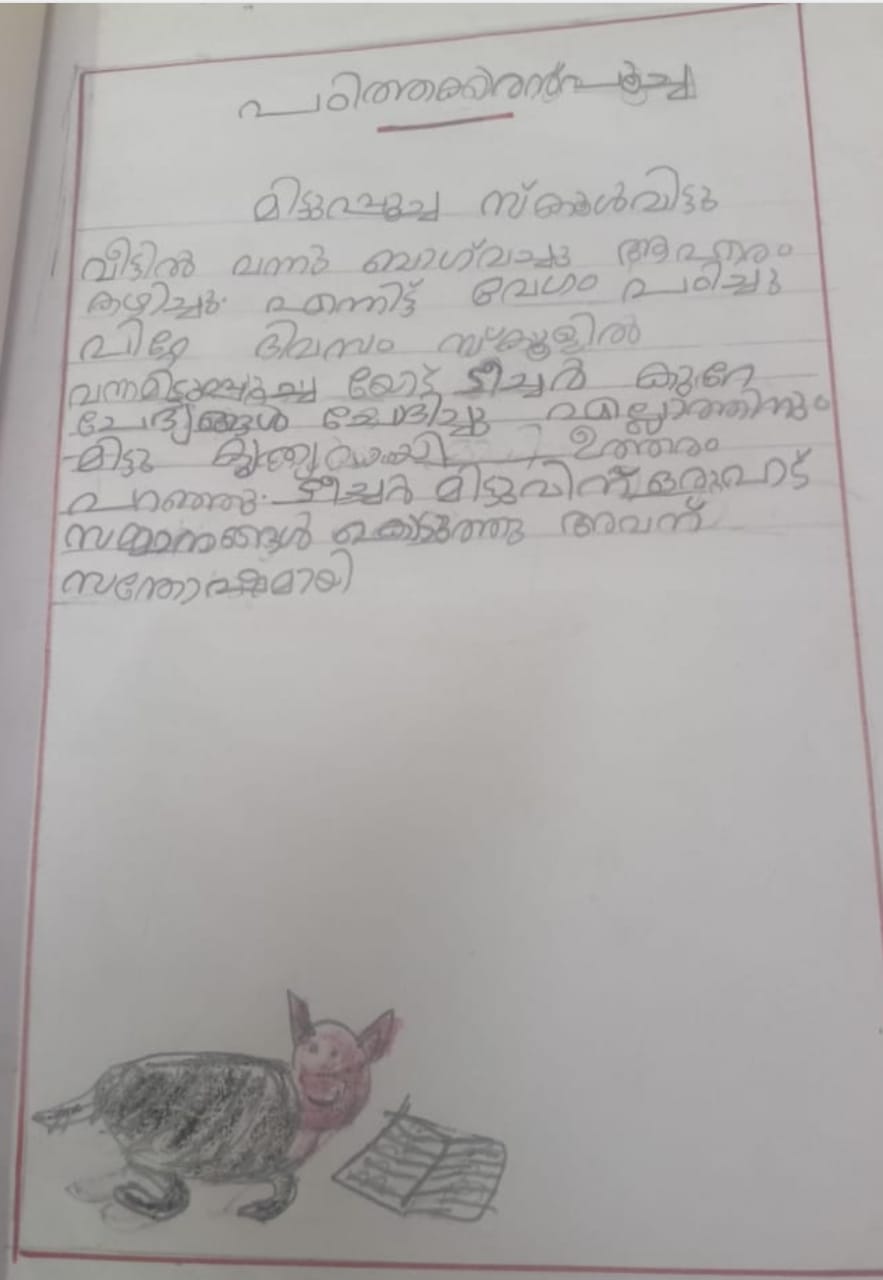 പഠിത്തക്കാരൻപൂച്ച
മിട്ടുപൂച്ച സ്കൂൾവിട്ടു
വീട്ടിൽ വന്നു ബാഗ്‌വച്ചു ആഹാരം
കഴിച്ചു. എന്നിട്ട് വേഗം പഠിച്ചു
പിറ്റേ ദിവസം സ്ക്കൂളിൽ
വന്നമിട്ടുപൂച്ച യോട് ടീച്ചർ കുറേ
ചോദ്യങ്ങൾ ചോദിച്ചു എല്ലാത്തിനും
മിട്ടു ഉത്തരം
പറഞ്ഞു. ടീച്ചർ മിട്ടുവിന് ഒരുപാട്
സമ്മാനങ്ങൾ കൊടുത്തു അവന്
സന്തോഷമായി